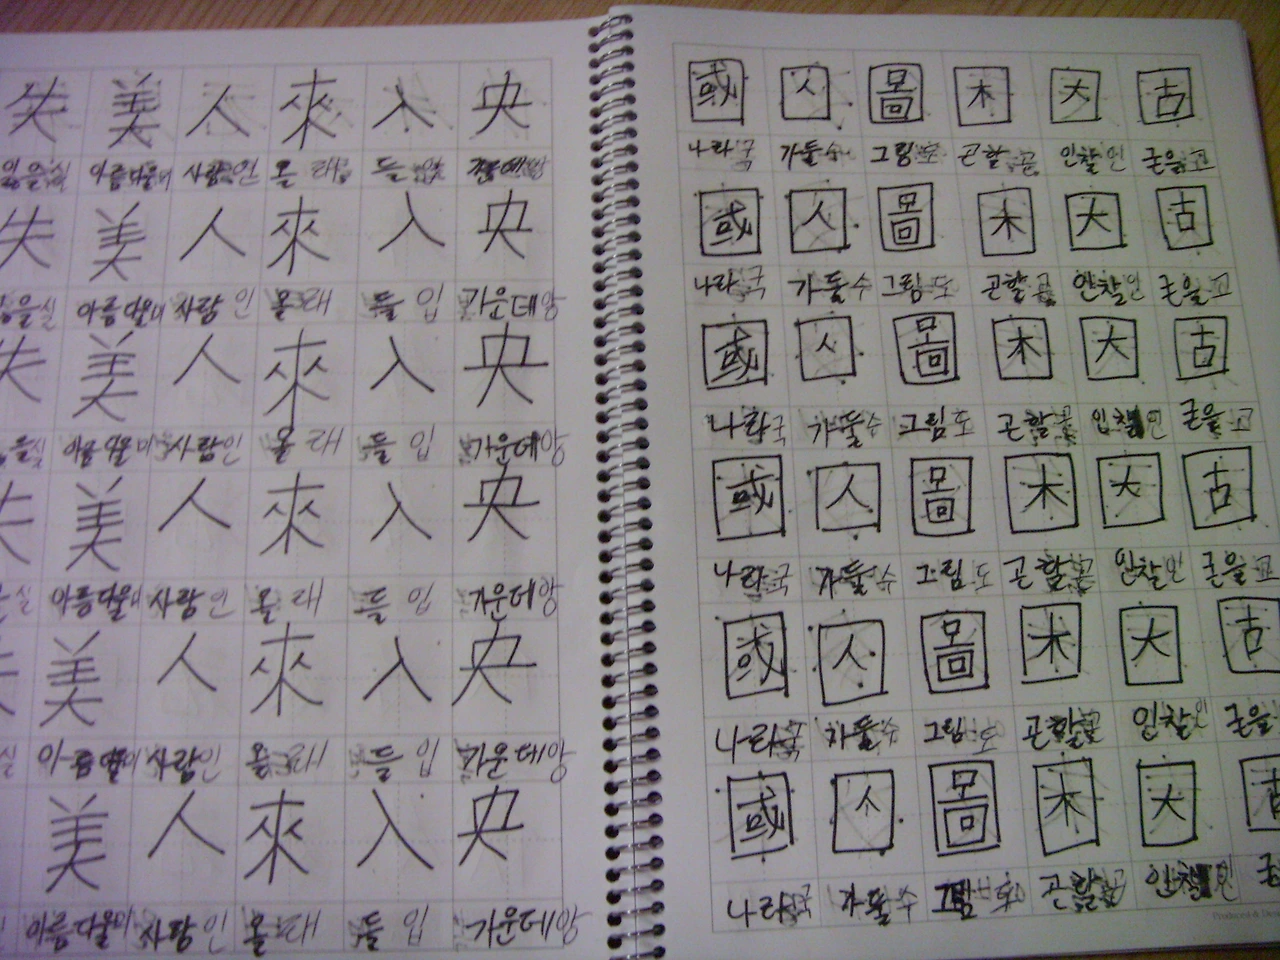 失 美 人 來 入 央
잃을실 아름다울미 사람인 올 래 들 입 가운데앙
失 美 人 來 入 央
을실 아름다울미 사람 인 올 래 들 입 가운데앙
失 美 人 來 入 央
을실 아름다울미 사람인 올 래 들 입 가운데앙
失 美 人 來 入 央
실 아름다울미 사람인 올 래 들 입 가운데앙
美 人 來 入 央
실 아름다울미 사람인 올 래 들 입 가운데앙
美 人 來 入 央
아름다울미 사람인 올 래 들 입 가운데앙
國 囚 圖 困 因 固
나라국 가둘수 그림도 곤할곤 인할인 굳을고
國 囚 圖 困 因 固
나라국 가둘수 그림도 곤할곤 인찰인 굳을고
國 囚 圖 困 因 固
나라국 가둘수 그림도 곤할곤 인 굳을고
國 囚 圖 困 因 固
나라국 가둘수 그림도 곤할곤 인찰인 굳을고
國 囚 圖 困 因 固
나라국 가둘수 그림도 곤할곤 인찰인 굳을
國 囚 圖 困 因 固
나라국 가둘수 그림도 곤할곤 인찰인
Produced &